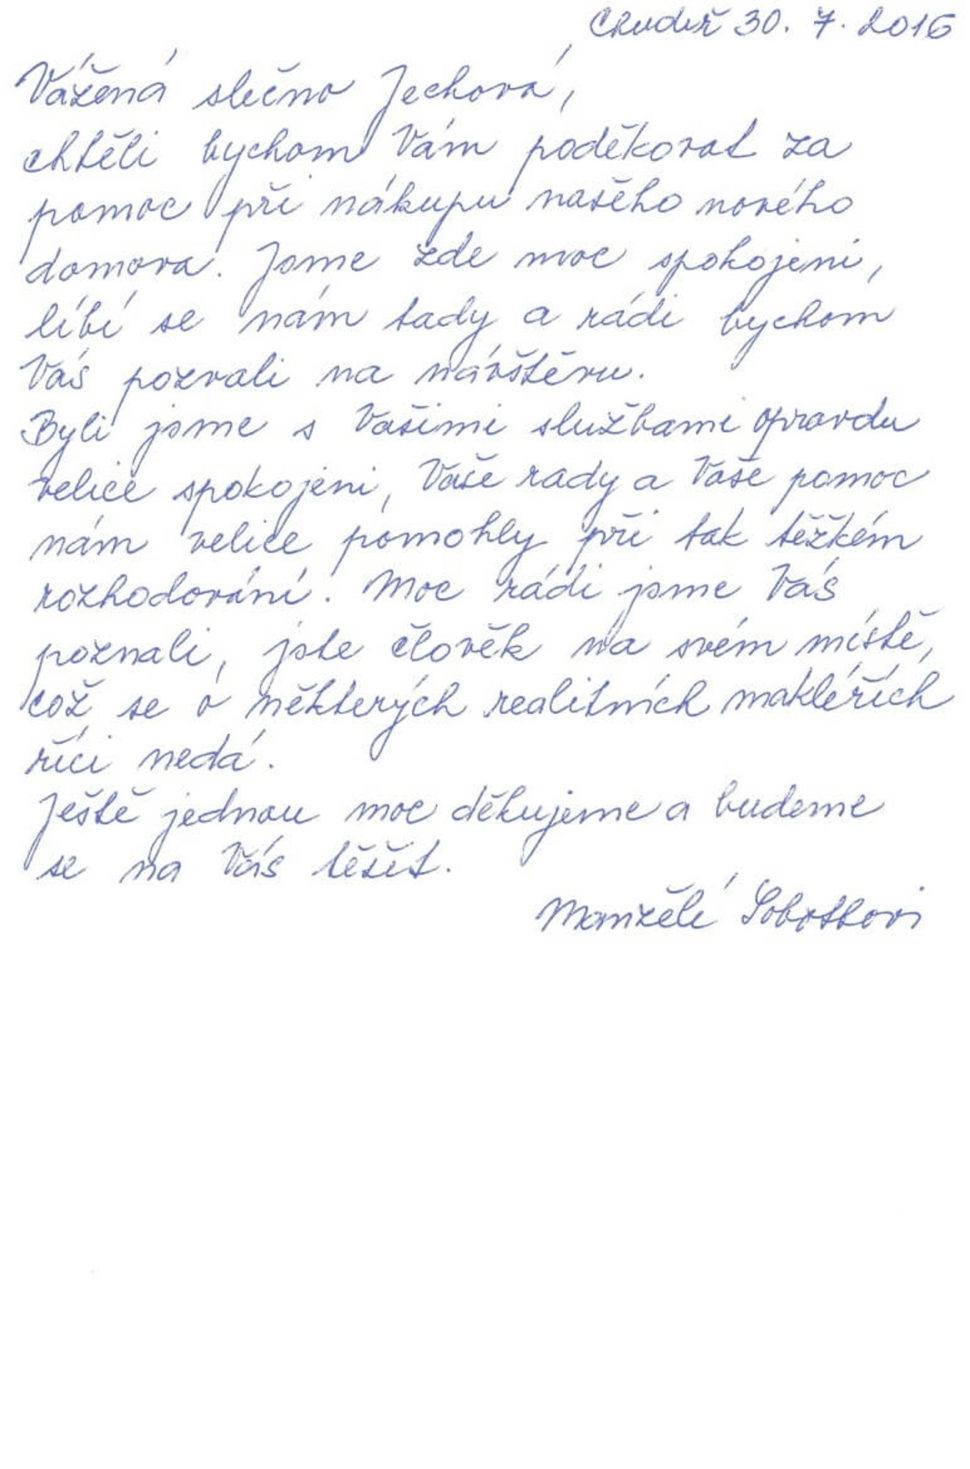 Chudíř 30. 7. 2016
Vážená slečno Jechová,
chtěli bychom Vám poděkovat za
pomoc při nákupu našeho nového
domova. Jsme zde moc spokojeni,
líbí se nám tady a rádi bychom
Vás pozvali na návštěvu.
Byli jsme s Vašimi službami opravdu
velice spokojeni, Vaše rady a Vaše pomoc
nám velice pomohly při tak těžkém
rozhodování. Moc rádi jsme Vás
poznali, jste člověk na svém místě,
což se o některých realitních makléřích
říci nedá.
Ještě jednou moc děkujeme a budeme
se na Vás těšit.
Manželé Sobotkovi